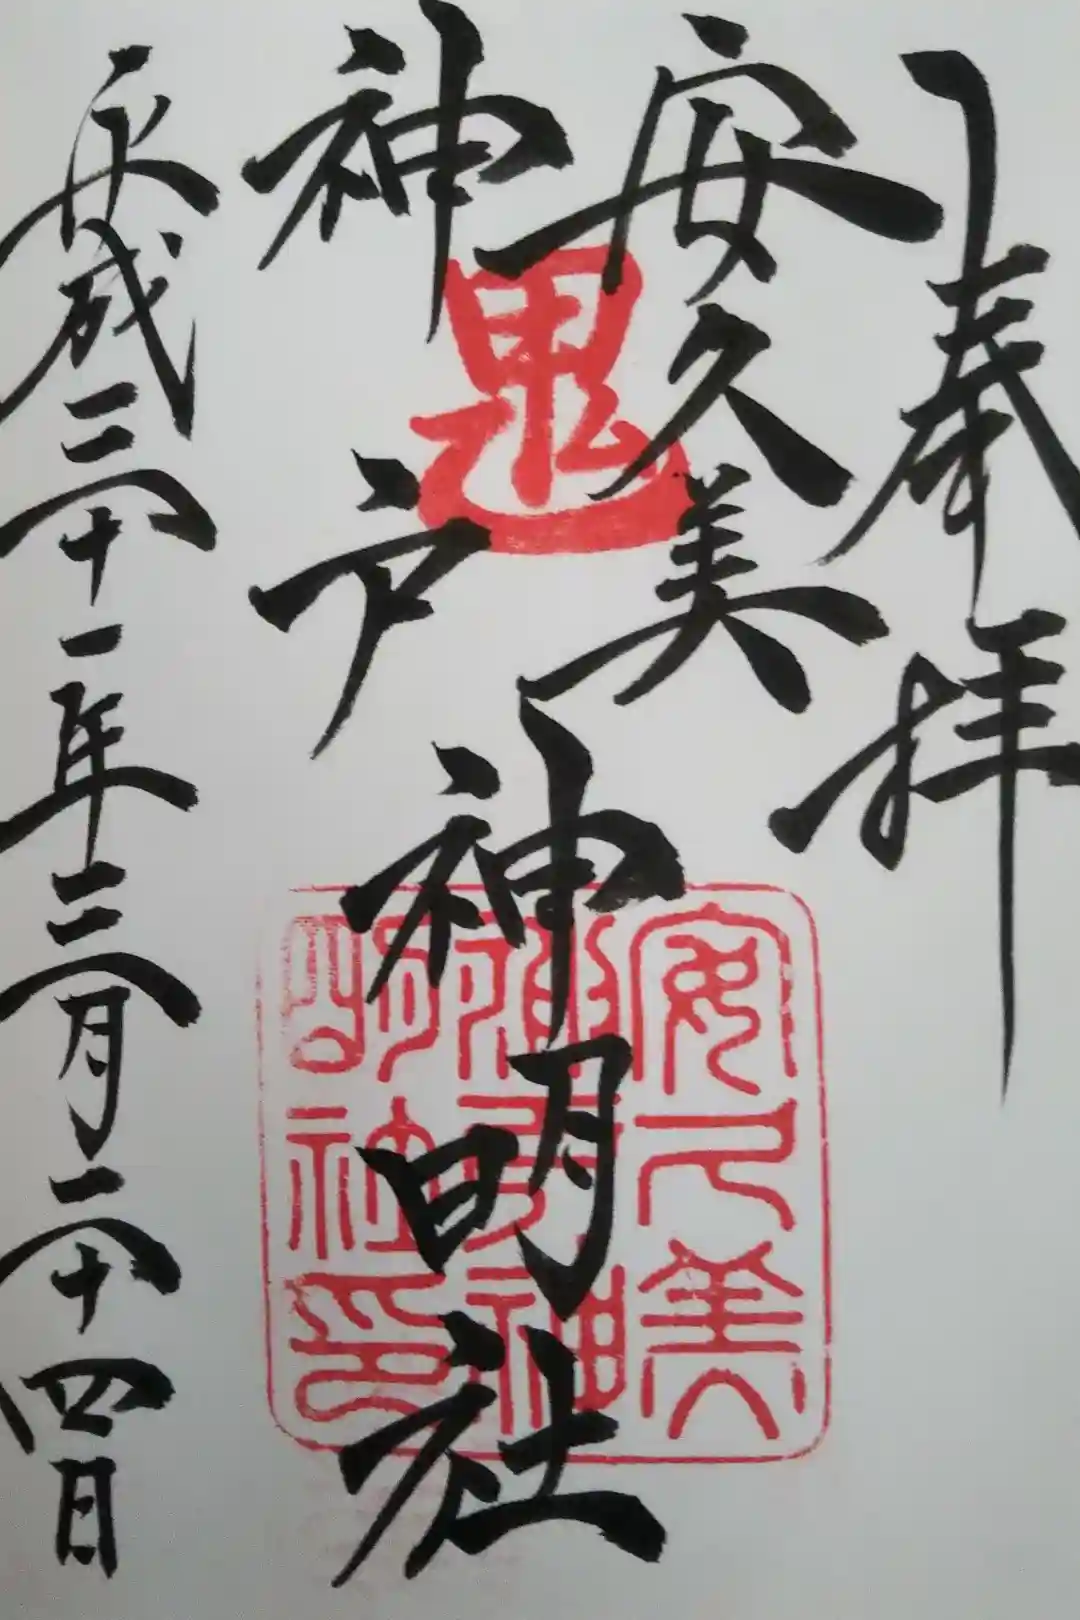 奉拝
安久美
神戸
神明社
鬼
安久美
神戸神
明社印
平成三十一年三月二十四日